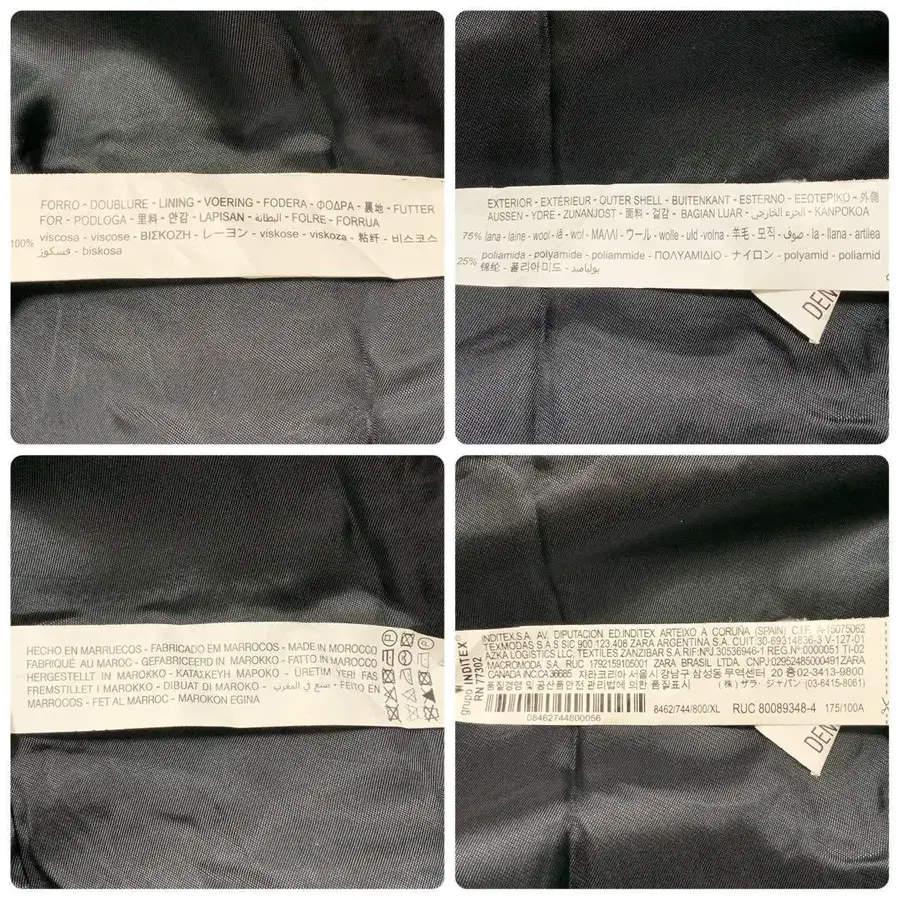 FORRO - DOUBLURE - LINING - VOERING - FODERA - ΦΟΔΡΑ - 裏地 - FUTTER
FOR - PODLOGA - 里料 - 안감 - LAPISAN - البطانة - FOLRE - FORRUA
100% viscosa - viscose - ΒΙΣΚΟΖΗ - レーヨン - viskose - viskoza - 粘纤 - 비스코스
فسكوز - biskosa
EXTERIOR - EXTÉRIEUR - OUTER SHELL - BUITENKANT - ESTERNO - ΕΞΩΤΕΡΙΚΟ - 外側
AUSSEN - YDRE - ZUNANJOST - 面料 - 겉감 - BAGIAN LUAR - الجزء الخارجي - KANPOKOA
75% lana - laine - wool - lã - wol - ΜΑΛΛΙ - ウール - wolle - uld - volna - 羊毛 - 모직 - صوف - la - llana - artilea
25% poliamida - polyamide - poliammide - ΠΟΛΥΑΜΙΔΙΟ - ナイロン - polyamid - poliamid
锦纶 - 폴리아미드 - بوليأميد
DEN
HECHO EN MARRUECOS - FABRICADO EM MARROCOS - MADE IN MOROCCO
FABRIQUÉ AU MAROC - GEFABRICEERD IN MAROKKO - FATTO IN MAROCCO
HERGESTELLT IN MAROKKO - ΚΑΤΑΣΚΕΥΗ ΜΑΡΟΚΟ - ÜRETIM YERI FAS
FREMSTILLET I MAROKKO - DIBUAT DI MAROKO - صنع في المغرب - FEITO EN
MARROCOS - FET AL MARROC - MAROKON EGINA
grupo INDITEX
RN 77302
INDITEX,S.A. AV. DIPUTACION ED.INDITEX ARTEIXO A CORUÑA (SPAIN) C.I.F. A-15075062
TEXMODAS S.A.S SIC 900.123.408 ZARA ARGENTINA S.A. CUIT:30-69314836-3 V-127-01
AZKA LOGISTICS LLC, TEXTILES ZANZIBAR S.A.RIF:Nº.J 30536946-1 REG.Nº:0000051 TI-02
MACROMODA S.A. RUC 1792159105001 ZARA BRASIL LTDA. CNPJ:02952485000491 ZARA
CANADA INC.CA36685 자라코리아 서울시 강남구 삼성동 무역센터 20 층 02-3413-9800
품질경영 및 공산품안전 관리법에 의한 품질표시 (株) ザラ・ジャパン (03-6415-8061)
8462/744/800/XL RUC 80089348-4 175/100A
08462744800056
DEN